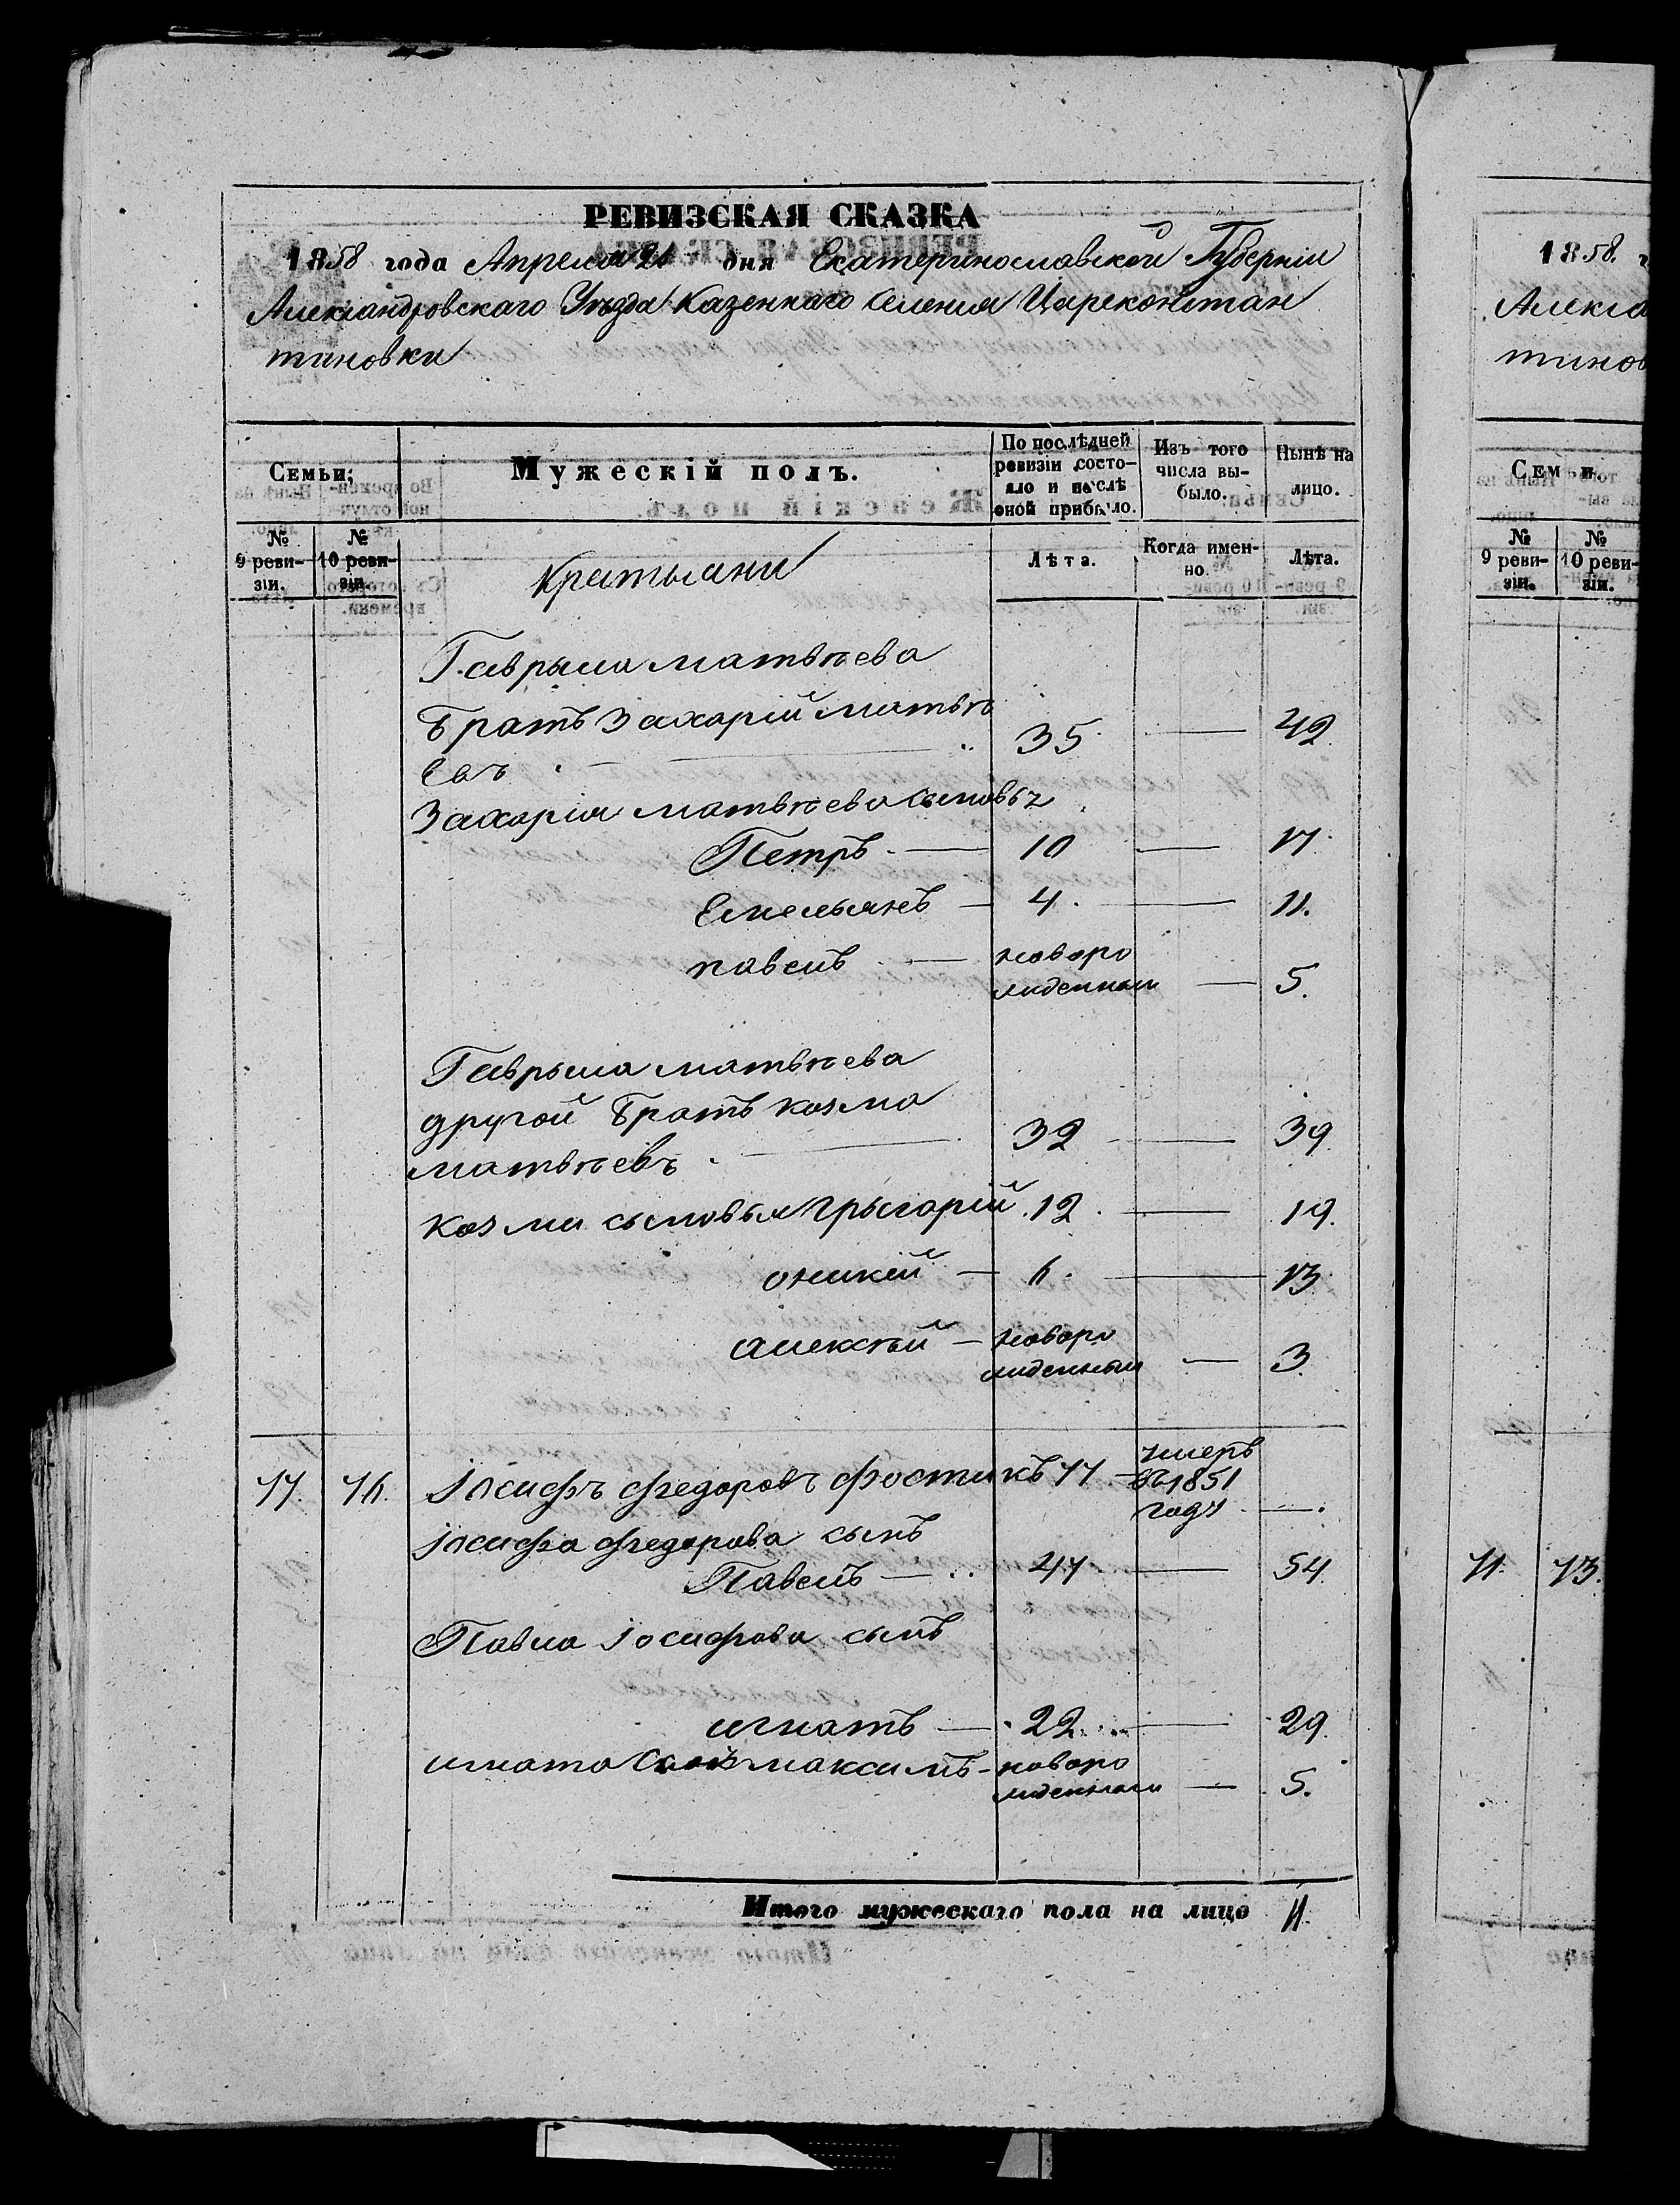 РЕВИЗСКАЯ СКАЗКА
1858 года Апреля дня Екатеринославской Губерніи
Александровскаго Уезда Казеннаго Селенія Цареконстан
тиновки
Семьи;
Мужескій полъ.
По послѣдней ревизіи состояло и послѣ оной прибыло.
Изъ того числа выбыло.
Нынѣ на лицо.
№ 9 ревизіи.
№ 10 ревизіи.
Крестьяни
Лѣта.
Когда именно.
Лѣта.
Гаврыла матвѣева
братъ Захарій матвѣ
евъ 35 — 42.
Захарія матвѣева сыновья
Петръ — 10 — 17.
Емельянъ — 4. — 11.
павелъ — новоро
жденный — 5.
Гаврыла матвѣева
другой братъ козма
матвѣевъ 32 — 39
козми сыновья Грыгорій 12. — 19.
оникій — 6. — 13
алексѣй — новоро
жденный — 3.
77. 76. Іосифъ федоровъ фостикъ 77 — умеръ
въ 1851
году —.
Іосифа федорова сынъ
Павелъ — 47 — 54
Павла Іосифова сынъ
игнатъ — 22 — 29
игната сынъ максимъ — новоро
жденный — 5.
Итого мужескаго пола на лицо 11.
1858.
Алекса
тинов
Семьи
№ 9 ревизіи.
№ 10 ревизіи.